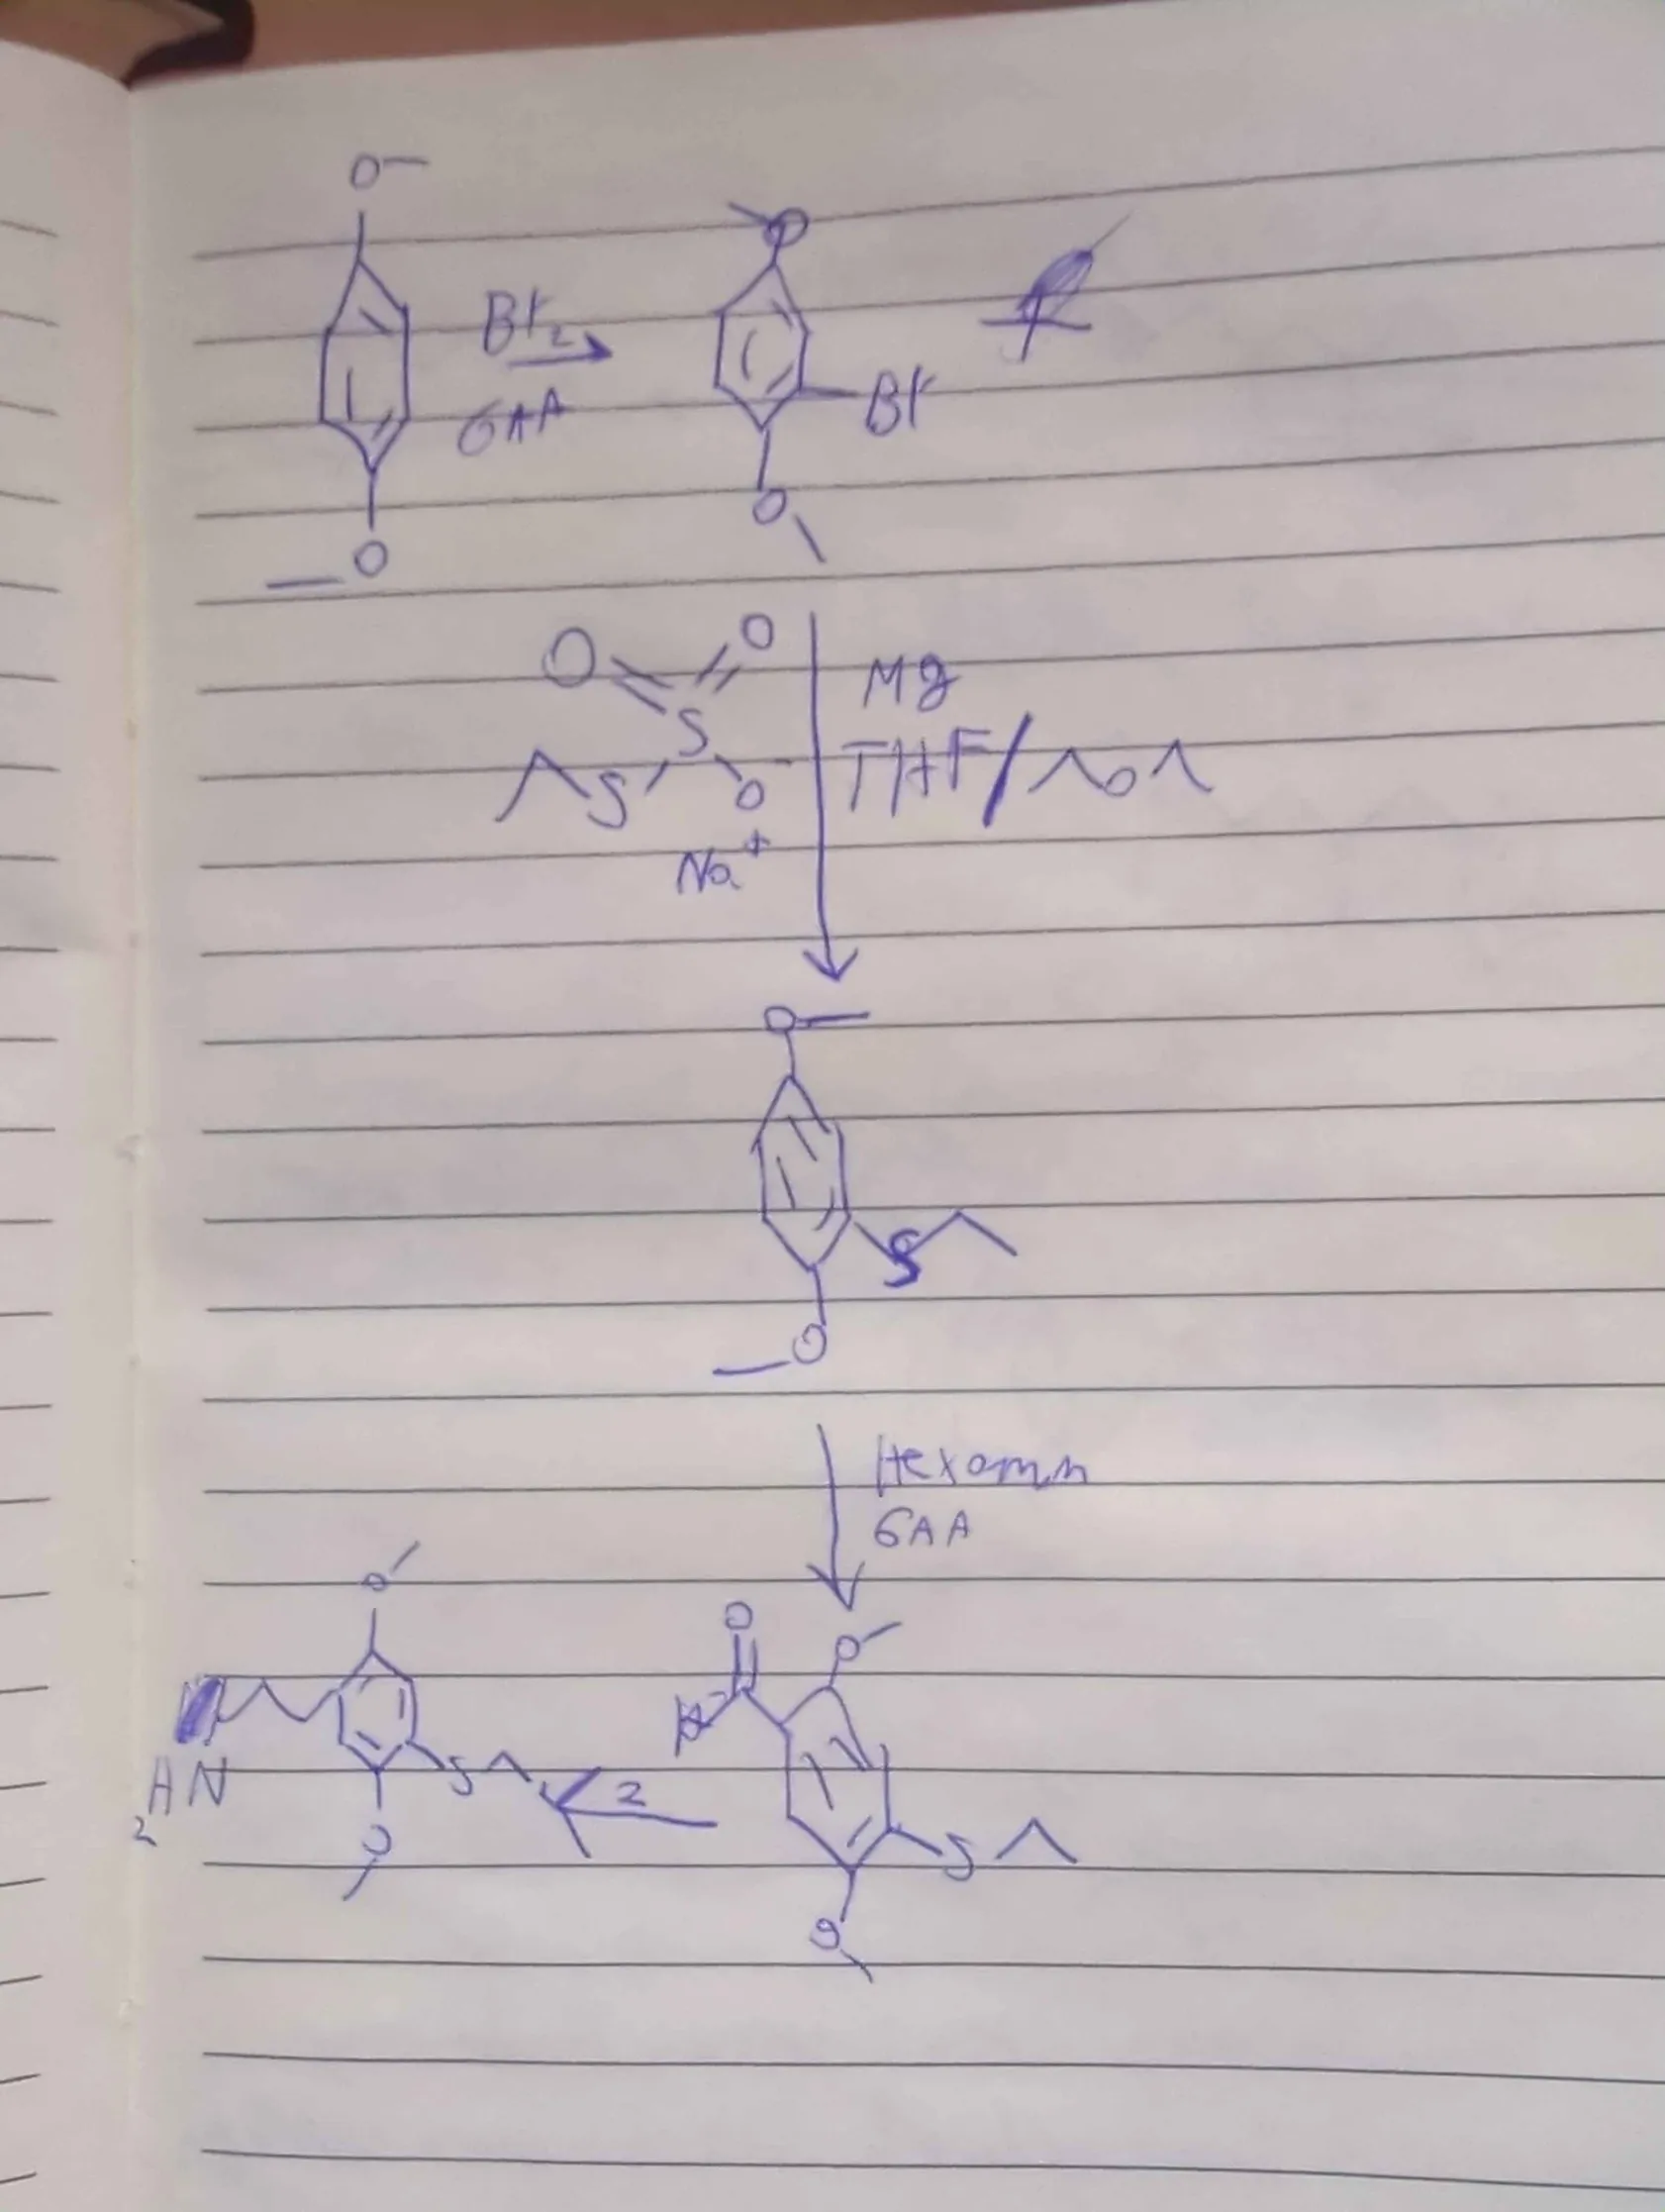 O
Br₂
GAA
O
O
Br
O
O O
S
S O⁻
Na⁺
Mg
THF/ O
O
S
O
Hexamin
GAA
O
O
O
H
S
O
2
O
S
O
₂HN